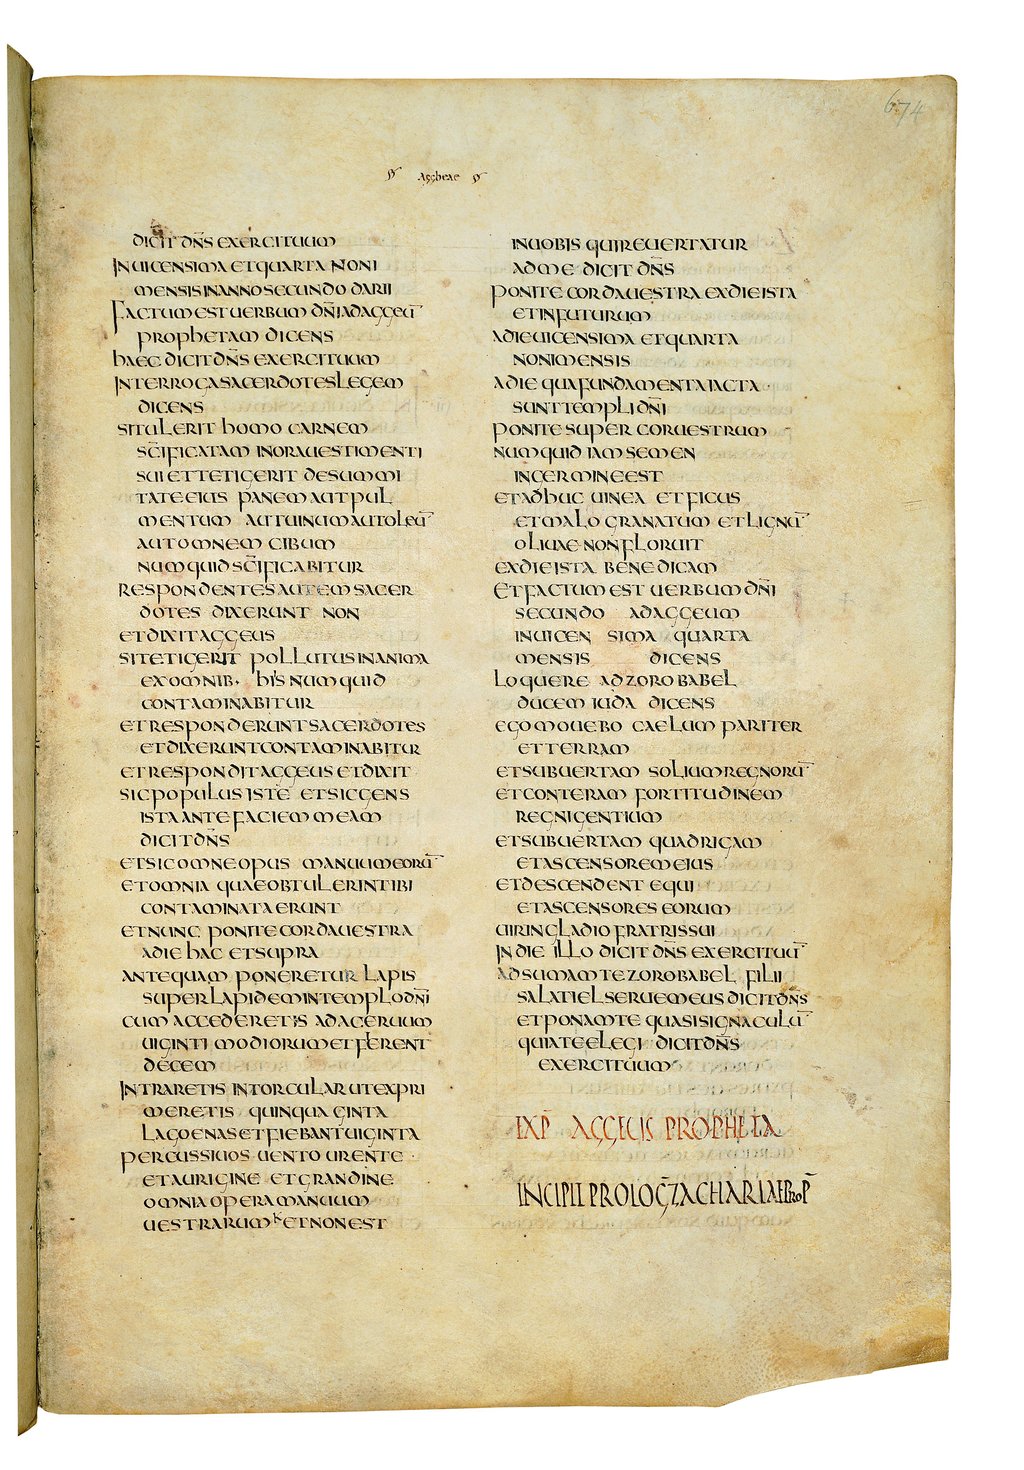 674
Aggheae
DICIT DN̄S EXERCITUUM
IN UICENSIMA ET QUARTA NONI
MENSIS IN ANNO SECUNDO DARII
FACTUM EST UERBUM DN̄I AD AGGEŪ
PROPHETAM DICENS
HAEC DICIT DN̄S EXERCITUUM
INTERROGA SACERDOTES LEGEM
DICENS
SI TULERIT HOMO CARNEM
SC̄IFICATAM IN ORA UESTIMENTI
SUI ET TETIGERIT DE SUMMI
TATE EIUS PANEM AUT PUL
MENTUM AUT UINUM AUT OLEŪ
AUT OMNEM CIBUM
NUMQUID SC̄IFICABITUR
RESPONDENTES AUTEM SACER
DOTES DIXERUNT NON
ET DIXIT AGGEUS
SI TETIGERIT POLLUTUS IN ANIMA
EX OMNIB· HIS NUMQUID
CONTAMINABITUR
ET RESPONDERUNT SACERDOTES
ET DIXERUNT CONTAMINABITUR
ET RESPONDIT AGGEUS ET DIXIT
SIC POPULUS ISTE ET SIC GENS
ISTA ANTE FACIEM MEAM
DICIT DN̄S
ET SIC OMNE OPUS MANUUM EORŪ
ET OMNIA QUAE OBTULERINT IBI
CONTAMINATA ERUNT
ET NUNC PONITE CORDA UESTRA
A DIE HAC ET SUPRA
ANTEQUAM PONERETUR LAPIS
SUPER LAPIDEM IN TEMPLO DN̄I
CUM ACCEDERETIS AD ACERUUM
UIGINTI MODIORUM ET FIERENT
DECEM
INTRARETIS IN TORCULAR UT EXPRI
MERETIS QUINQUAGINTA
LAGOENAS ET FIEBANT UIGINTI
PERCUSSI UOS UENTO URENTE
ET AURIGINE ET GRANDINE
OMNIA OPERA MANUUM
UESTRARUM ET NON EST
IN UOBIS QUI REUERTATUR
AD ME DICIT DN̄S
PONITE CORDA UESTRA EX DIE ISTA
ET IN FUTURUM
A DIE UICENSIMA ET QUARTA
NONI MENSIS
A DIE QUA FUNDAMENTA IACTA
SUNT TEMPLI DN̄I
PONITE SUPER COR UESTRUM
NUMQUID IAM SEMEN
IN GERMINE EST
ET ADHUC UINEA ET FICUS
ET MALOGRANATUM ET LIGNŪ
OLIUAE NON FLORUIT
EX DIE ISTA BENEDICAM
ET FACTUM EST UERBUM DN̄I
SECUNDO AD AGGEUM
IN UICENSIMA QUARTA
MENSIS DICENS
LOQUERE AD ZOROBABEL
DUCEM IUDA DICENS
EGO MOUEBO CAELUM PARITER
ET TERRAM
ET SUBUERTAM SOLIUM REGNORŪ
ET CONTERAM FORTITUDINEM
REGNI GENTIUM
ET SUBUERTAM QUADRIGAM
ET ASCENSOREM EIUS
ET DESCENDENT EQUI
ET ASCENSORES EORUM
UIR IN GLADIO FRATRIS SUI
IN DIE ILLO DICIT DN̄S EXERCITUŪ
ADSUMAM TE ZOROBABEL FILII
SALATIEL SERUE MEUS DICIT DN̄S
ET PONAM TE QUASI SIGNACULŪ
QUIA TE ELEGI DICIT DN̄S
EXERCITUUM
EXP̄ AGGEUS PROPHETA
INCIPIT PROLOḠ ZACHARIAE PROP̄